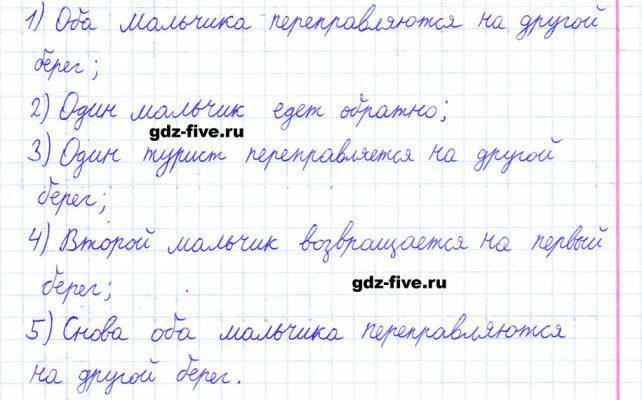 1) Оба мальчика переправляются на другой
берег;
2) Один мальчик едет обратно;
gdz-five.ru
3) Один турист переправляется на другой
берег;
4) Второй мальчик возвращается на первый
берег;
gdz-five.ru
5) Снова оба мальчика переправляются
на другой берег.